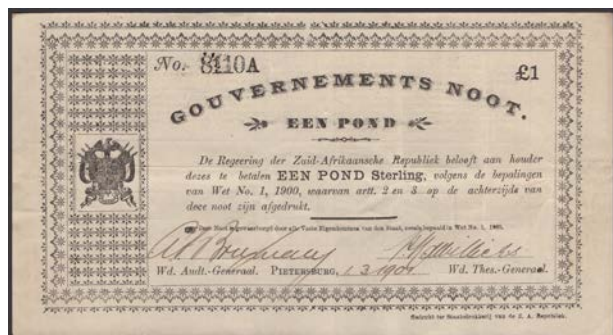 No. 8110A
£1
GOUVERNEMENTS NOOT.
EEN POND
De Regeering der Zuid-Afrikaansche Republiek belooft aan houder
dezes te betalen EEN POND Sterling, volgens de bepalingen
van Wet No. 1, 1900, waarvan artt. 2 en 3 op de achterzijde van
deze noot zijn afgedrukt.
Deze Noot is gewaarborgd door alle Vaste Eigendommen van den Staat, zooals bepaald in Wet No. 1, 1900.
Wd. Audt.-Generaal. PIETERSBURG, 1.3.1901 Wd. Thes.-Generaal.
Gedrukt ter Staatsdrukkerij van de Z. A. Republiek.